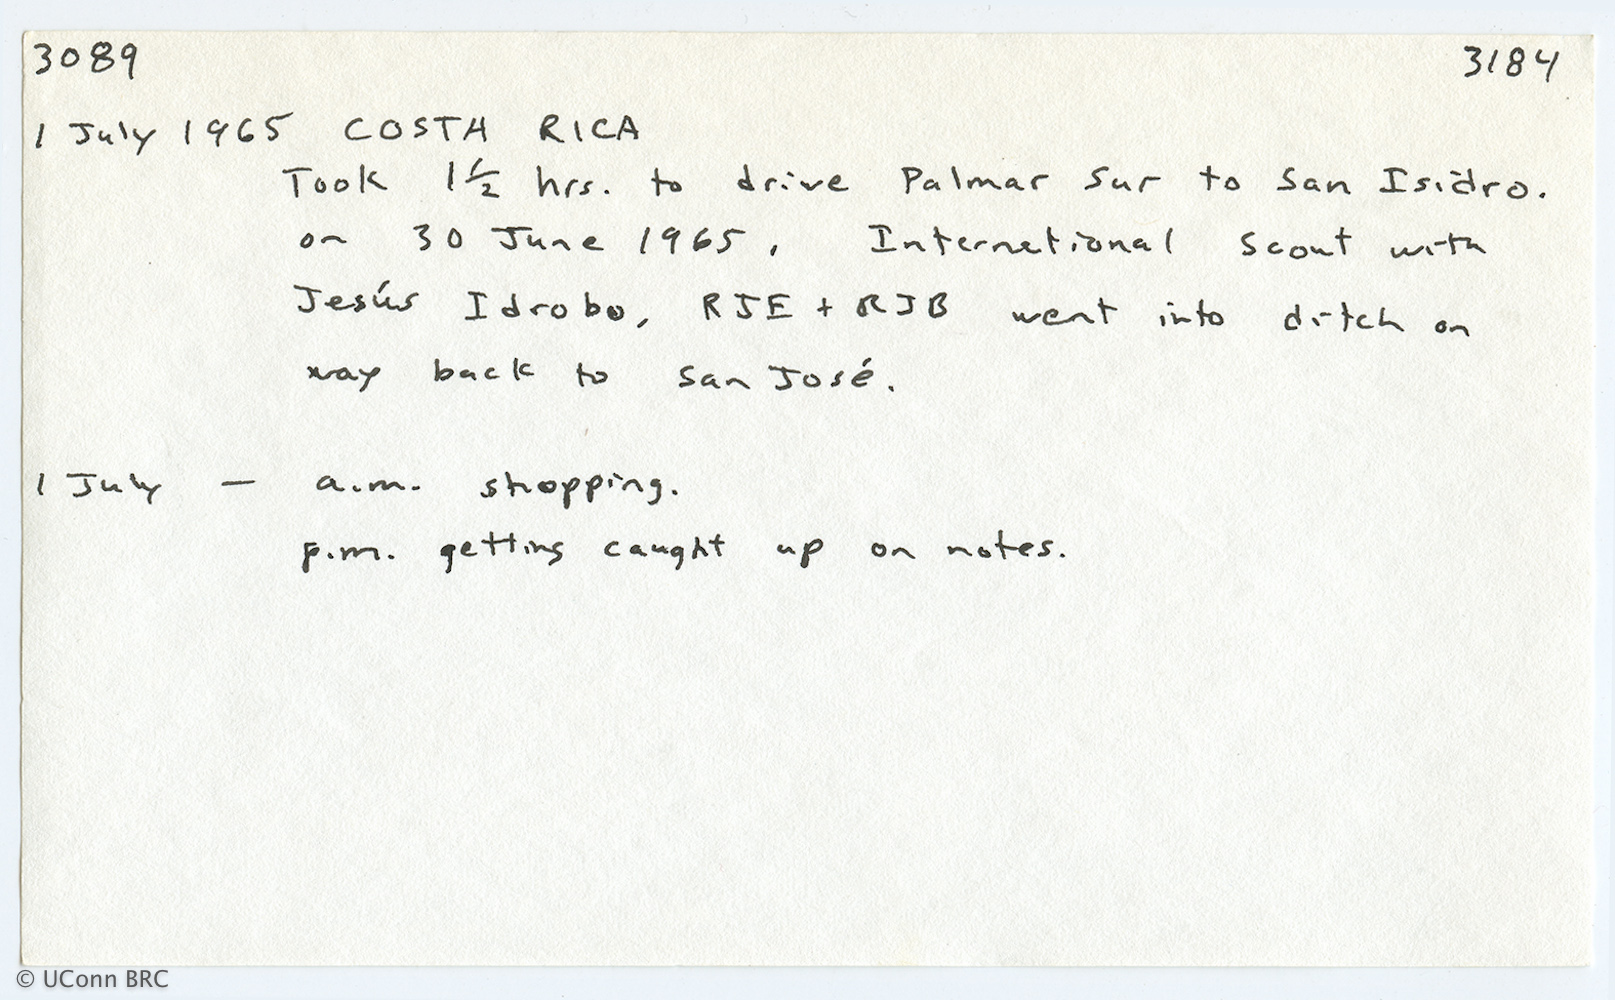 3089 3184
1 July 1965 COSTA RICA
Took 1 1/2 hrs. to drive Palmar Sur to San Isidro.
on 30 June 1965, International Scout with
Jesús Idrobo, RJE + RJB went into ditch on
way back to San José.
1 July — a.m. shopping.
p.m. getting caught up on notes.
© UConn BRC